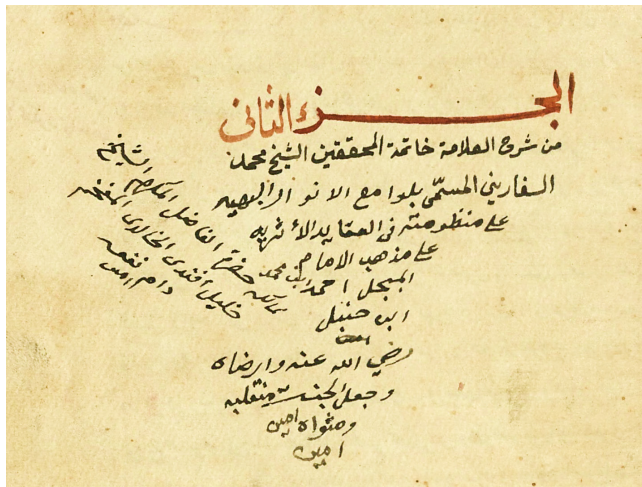 الجزء الثانى
من شرح العلامة خاتمة المحققين الشيخ محمد
السفاريني المسمّى بلوامع الانوار البهيه
على منظومته فى العقايد الأثريه
على مذهب الامام
المبجل احمد ابن محمد
ابن حنبل
رضي الله عنه وارضاه
وجعل الجنت منقلبه
ومثواه امين
امين
حضرة الفاضل المكرم الشيخ
خليل افندى الخالدى
دام نفعه
امين